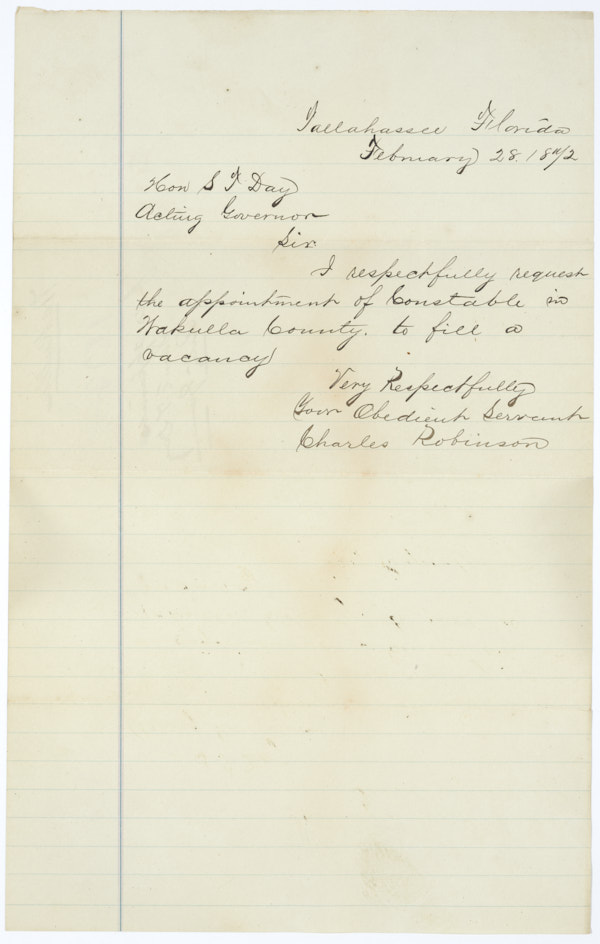 Tallahassee Florida
February 28. 1872
Hon S T Day
Acting Governor
Sir.
I respectfully request
the appointment of Constable in
Wakulla County. to fill a
vacancy
Very Respectfully
Your Obedient Servant
Charles Robinson